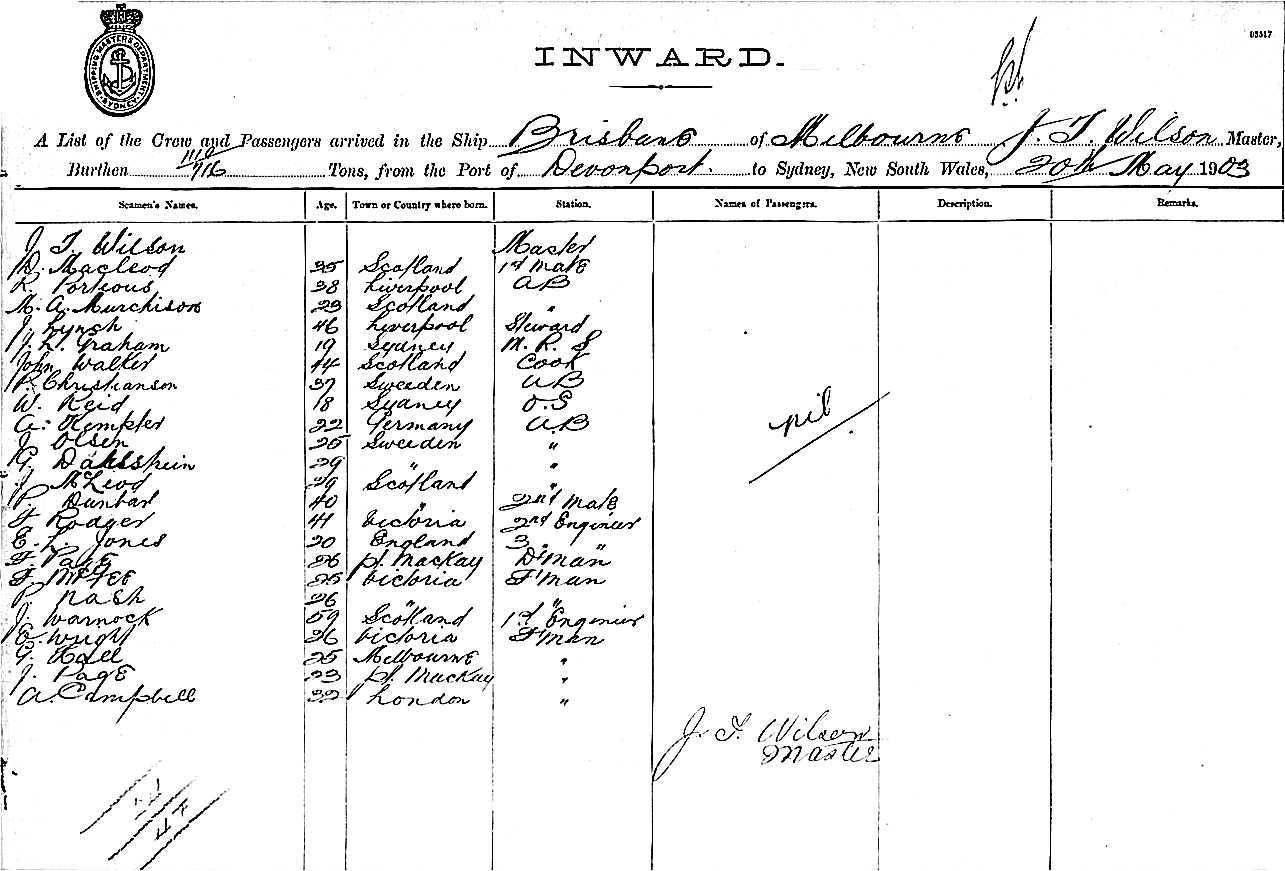 03517
INWARD.
SHIPPING MASTERS DEPARTMENT SYDNEY
A List of the Crew and Passengers arrived in the Ship Brisbane of Melbourne J. T. Wilson Master,
Burthen Tons, from the Port of Devonport. to Sydney, New South Wales, 20th May 1903
Seamen's Names. Age. Town or Country where born. Station. Names of Passengers. Description. Remarks.
J. T. Wilson Master
D. Macleod 35 Scotland 1st Mate
R. Porteous 38 Liverpool AB
M. A. Murchison 23 Scotland "
J. Lynch 46 Liverpool Steward
J. L. Graham 19 Sydney M. R. S
John Walker 44 Scotland Cook
P. Christianson 37 Sweeden AB
W. Reid 18 Sydney O.S
A. Kempter 22 Germany A.B
J. Olsen 25 Sweeden "
G. Dahlshein 29 " "
J. McLeod 29 Scotland "
P. Dunbar 40 " 2nd Mate
F. Rodger 41 Victoria 2nd Engineer
E. L. Jones 20 England 3 "
F. Page 26 pt. Mackay D'man
F. McFee 25 Victoria F'man
P. Nash 26 " "
J. Warnock 59 Scotland 1st Engineer
E. Wright 26 Victoria F'man
G. Hall 25 Melbourne "
J. Page 23 pt. Mackay "
A. Campbell 32 London "
nil
J. T. Wilson
Master